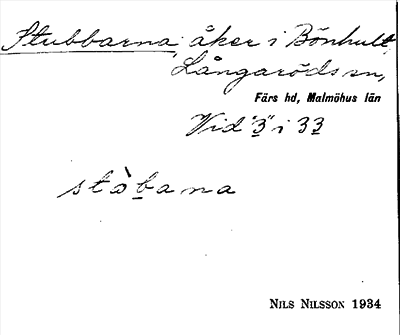 Stubbarna, åker i Bönhult,
Långaröds sn,
Färs hd, Malmöhus län
Vid "3" i 33
stòbana
NILS NILSSON 1934